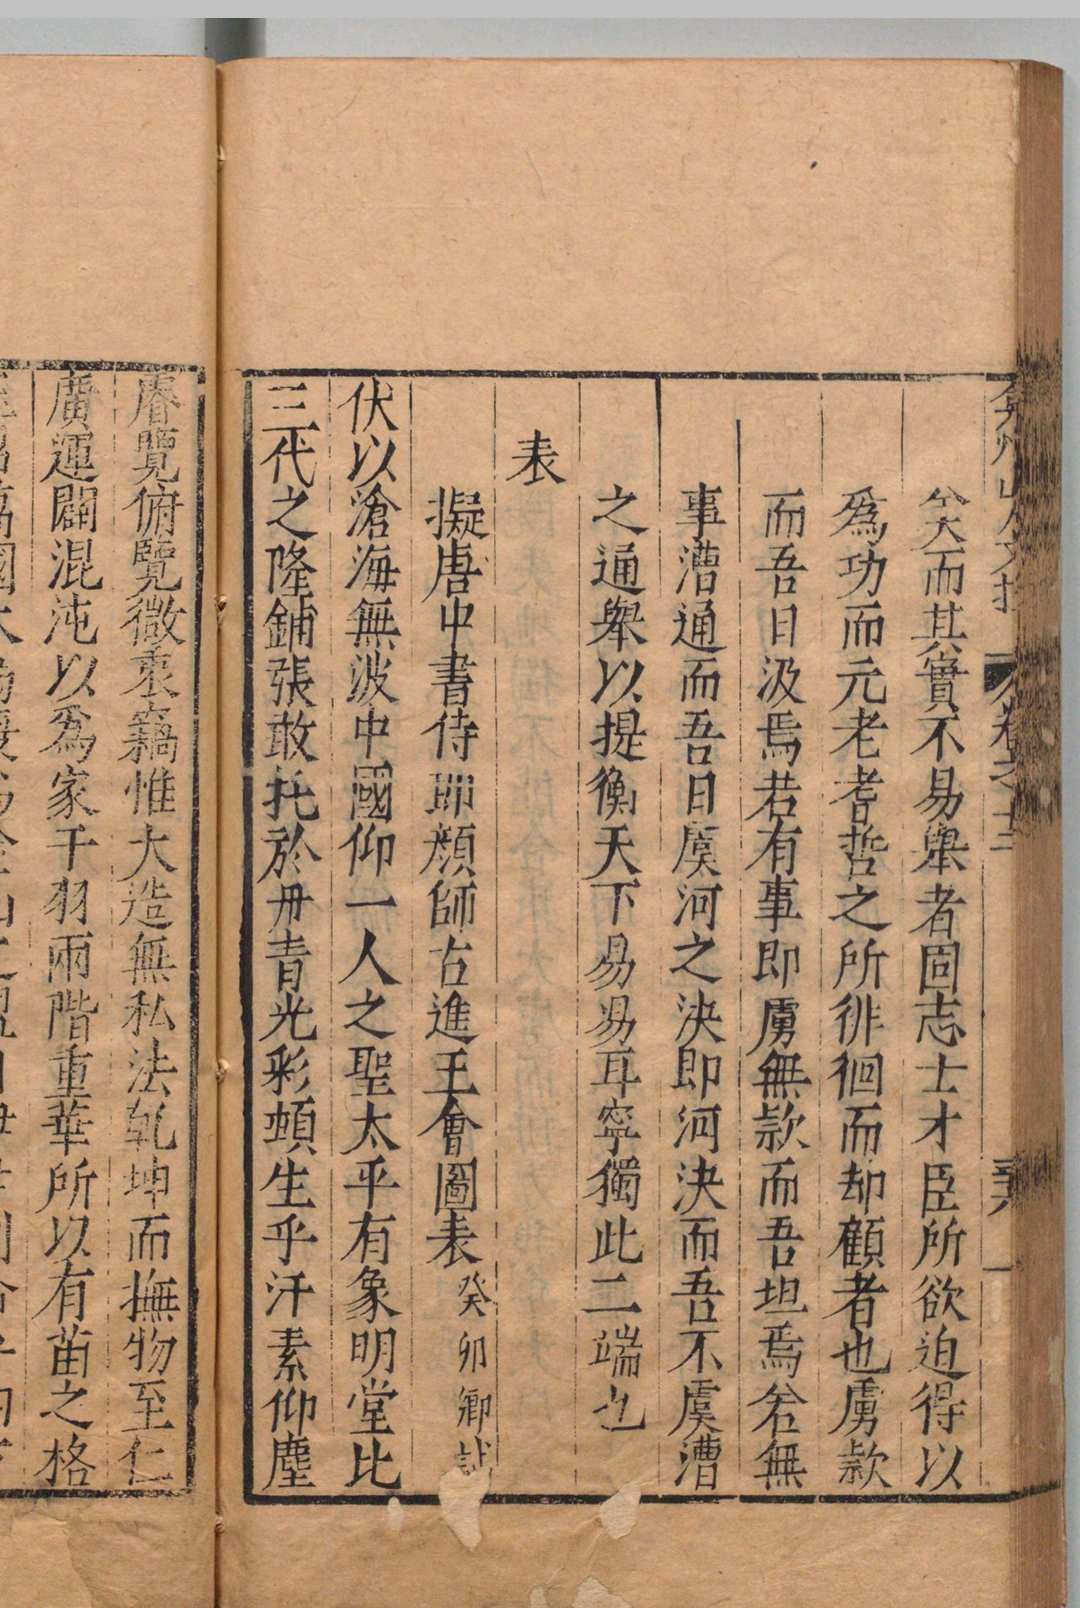 矣而其實不易舉者固志士才臣所欲迫得以
爲功而元老耆哲之所徘徊而却顧者也虜款
而吾日汲焉若有事即虜無款而吾坦焉若無
事漕通而吾日虞河之決即河決而吾不虞漕
之通舉以提衡天下易易耳寧獨此二端也
表
擬唐中書侍郎顏師古進王會圖表癸卯鄉試
伏以滄海無波中國仰一人之聖太平有象明堂比
三代之隆鋪張敢托於丹青光彩頓生乎汗素仰塵
睿覽俯覽微衷竊惟大造無私法乾坤而撫物至仁
廣運闢混沌以爲家干羽兩階重華所以有苗之格